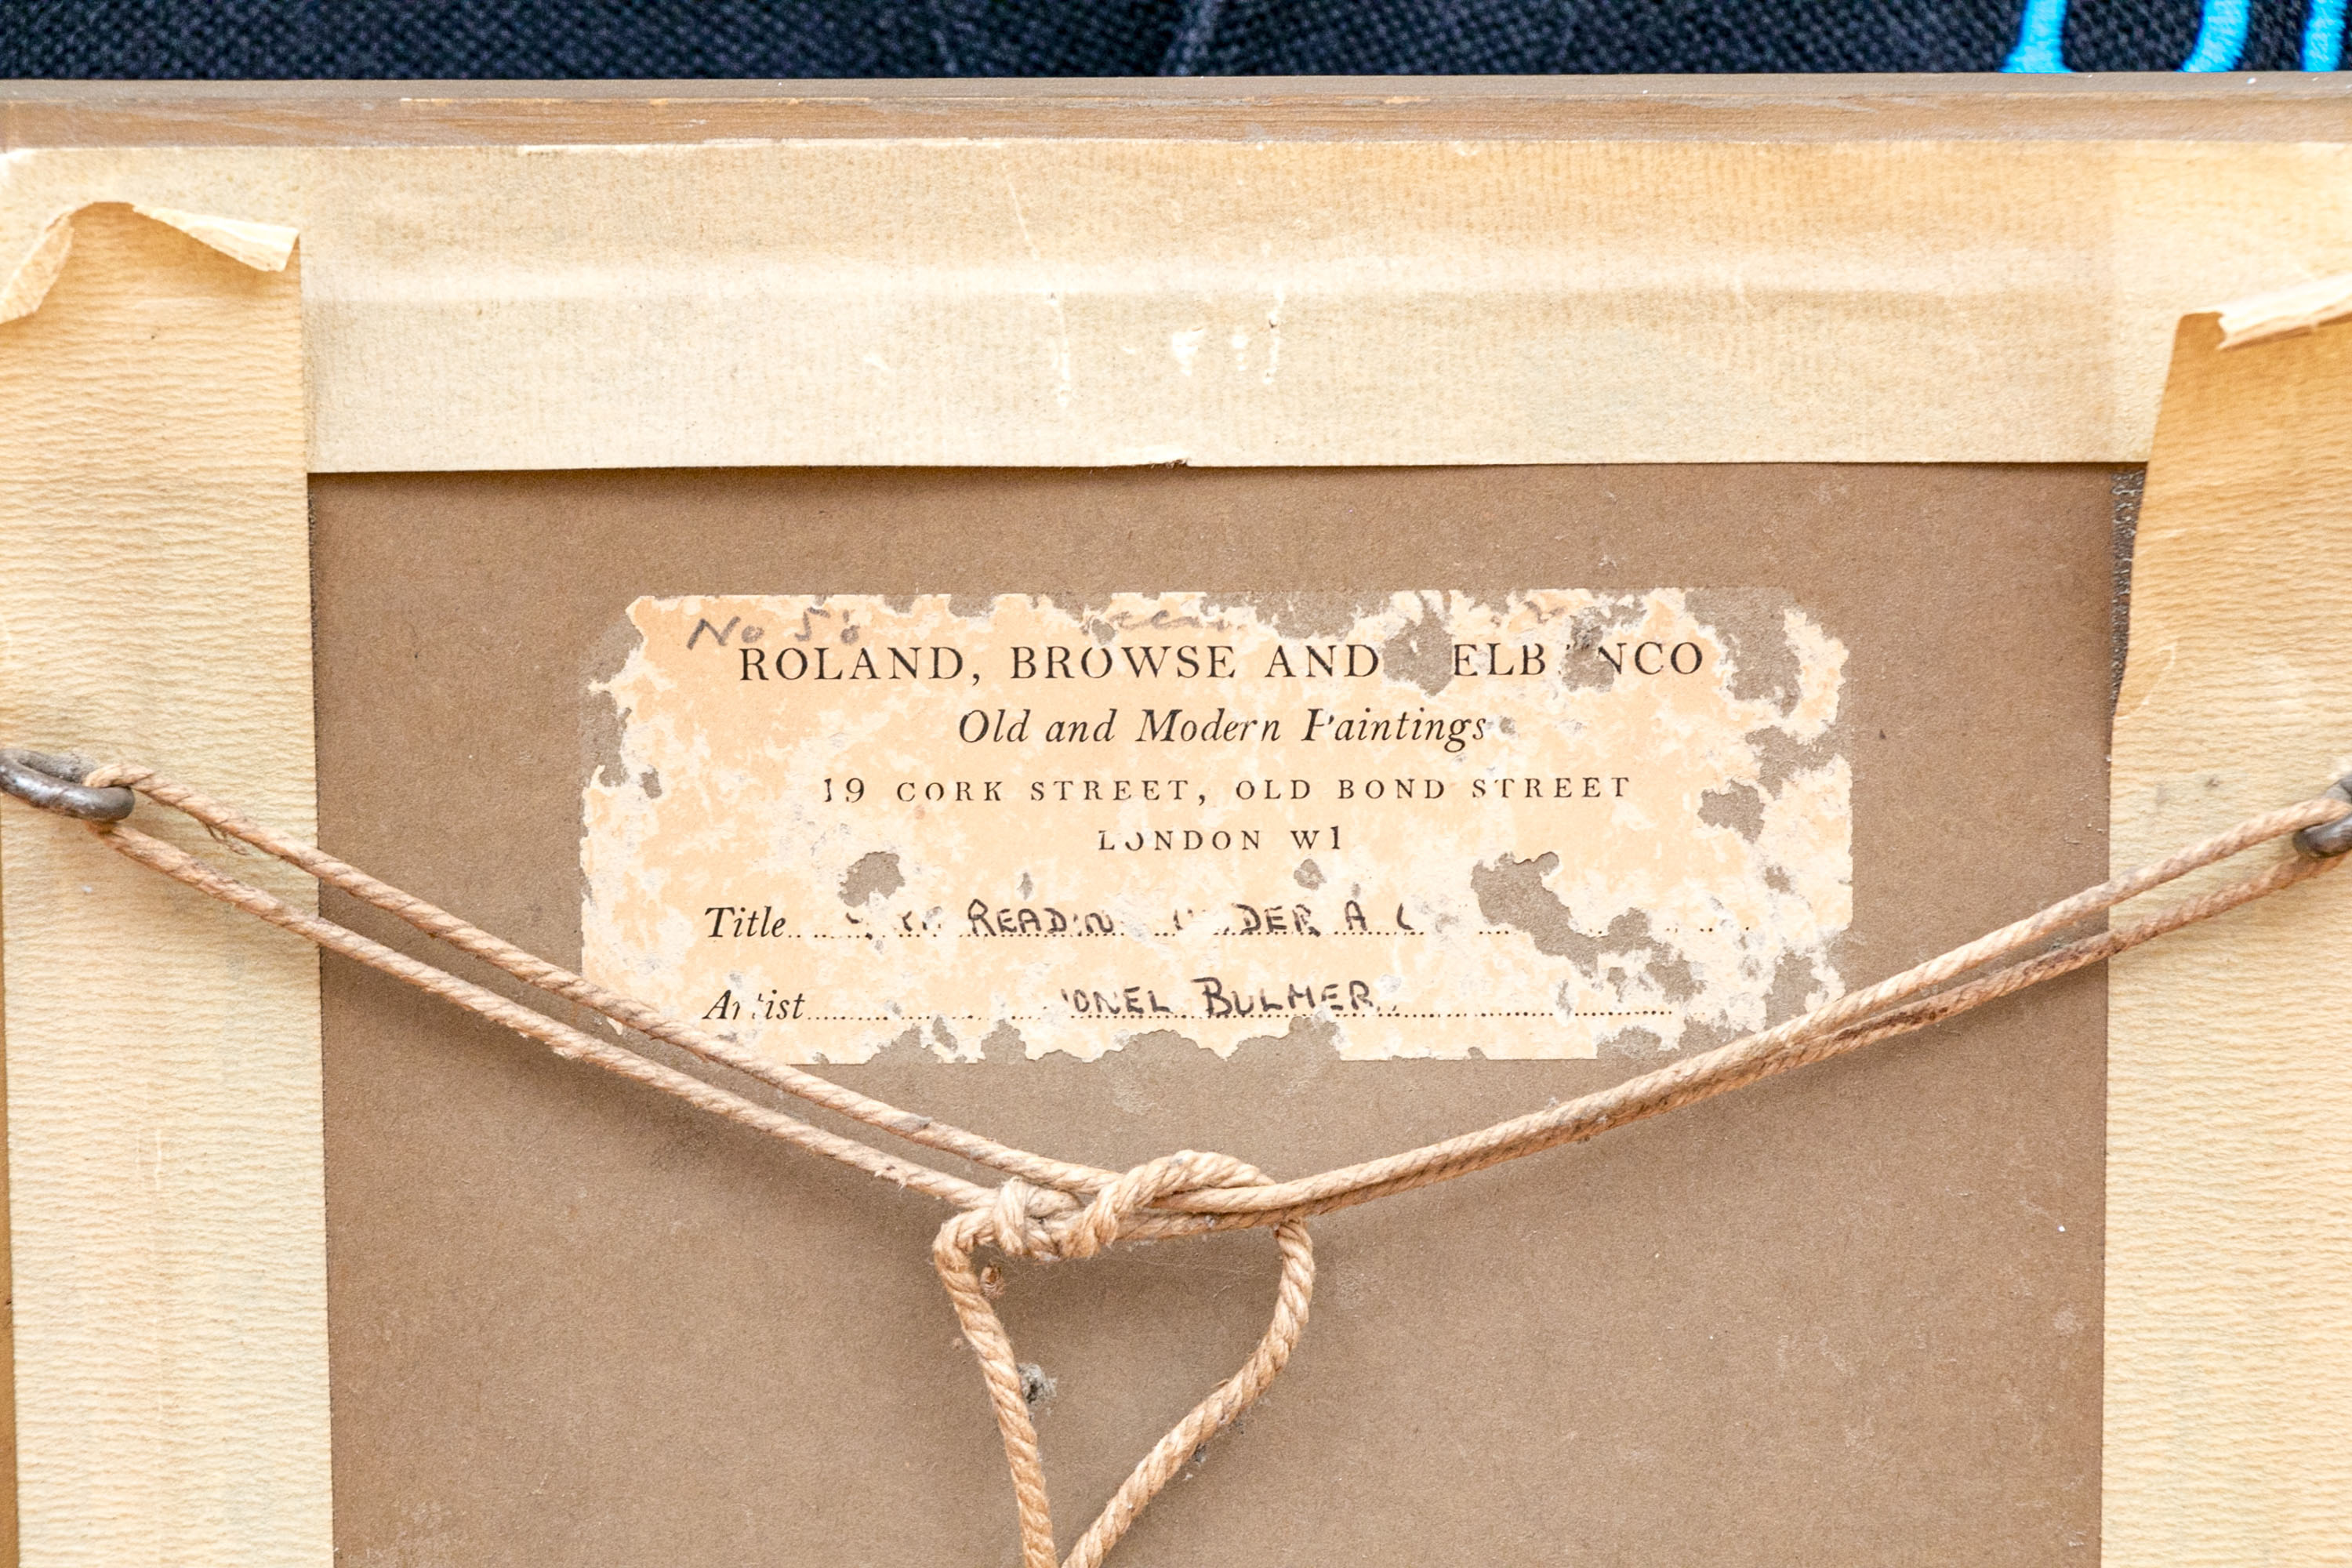 No 58
ROLAND, BROWSE AND ELB NCO
Old and Modern Paintings
19 CORK STREET, OLD BOND STREET
LONDON W1
Title READIN DER A
Artist IONEL BULMER